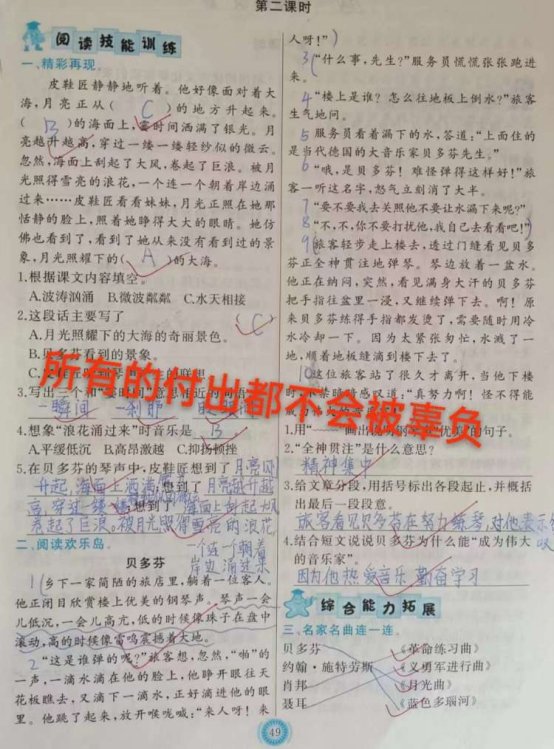 第二课时
阅读技能训练
一、精彩再现。
皮鞋匠静静地听着。他好像面对着大
海,月亮正从( C )的地方升起来。
( B )的海面上,霎时间洒满了银光。月
亮越升越高,穿过一缕一缕轻纱似的微云。
忽然,海面上刮起了大风,卷起了巨浪。被月
光照得雪亮的浪花,一个连一个朝着岸边涌
过来……皮鞋匠看看妹妹,月光正照在她那
恬静的脸上,照着她睁得大大的眼睛。她仿
佛也看到了,看到了她从来没有看到过的景
象,月光照耀下的( A )的大海。
1.根据课文内容填空。
A.波涛汹涌 B.微波粼粼 C.水天相接
2.这段话主要写了 ( C )
A.月光照耀下的大海的奇丽景色。
B.贝多芬看到的景象。
所有的付出都不会被辜负
3.写出
一瞬间 一刹那
4.想象“浪花涌过来”时音乐是 B
A.平缓低沉 B.高昂激越 C.抑扬顿挫
5.在贝多芬的琴声中,皮鞋匠想到了 月亮
升起,海面上洒满 想到了 月亮越升越
高,穿过 想到了 海面上刮起大风
卷起了巨浪。被月光照得雪亮的浪花
一个连一个朝着
岸边涌过来
二、阅读欢乐岛。
贝多芬
1(乡下一家简陋的旅店里,躺着一位客人。
他正闭目欣赏楼上优美的钢琴声。琴声一会
儿低沉,一会儿高亢,低的时候像珠子在盘中
滚动,高的时候像雷鸣震撼着大地。
2“这是谁弹的呢?”旅客想,忽然,“啪”的
一声,一滴水滴在他的脸上,他睁开眼往天
花板瞧去,又滴下一滴水,正好滴进他的眼
里。他跳了起来,放开喉咙喊:“来人呀!来
人呀!”)
3(“什么事,先生?”服务员慌慌张张跑进
来。
4“楼上是谁?怎么往地板上倒水?”旅客
生气地问。
5服务员看着漏下的水,答道:“上面住的
是当代德国的大音乐家贝多芬先生。”
6“哦,是贝多芬!难怪弹得这样好!”旅
客一听这名字,怒气立刻消了大半。
7“要不要我去关照他不要让水漏下来呢?”
8“不,不,你不要打扰他,我自己去看看吧!”)
9(旅客轻步走上楼去,透过门缝看见贝多
芬正全神贯注地弹琴。琴边放着一盆水。
他正在纳闷,突然,看见满身大汗的贝多芬
把手指往盆里一浸,又继续弹下去。啊!原
来贝多芬练得手指都发烫了,需要随时用冷
水冷却一下。因为太紧张匆忙,水溅了一
地,顺着地板缝滴到楼下去了。
10这位旅客站了很久才离开,当他下楼
时,不禁暗暗感叹道:“真努力啊!怪不得能
1.用“
的句子。
2.“全神贯注”是什么意思?
精神集中
3.给文章分段,用括号标出各段起止,并概括
出最后一段段意。
旅客看见贝多芬在努力练琴,对他表示
4.结合短文说说贝多芬为什么能“成为伟大
的音乐家”。
因为他热爱音乐 勤奋学习
综合能力拓展
三、名家名曲连一连。
贝多芬 《革命练习曲》
约翰·施特劳斯 《义勇军进行曲》
肖邦 《月光曲》
聂耳 《蓝色多瑙河》
49